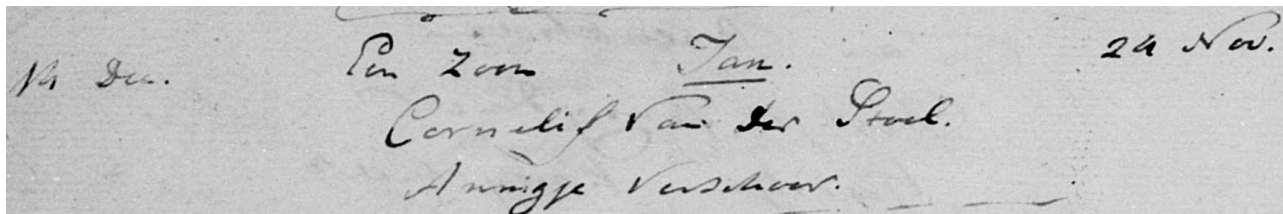 14 Dec. Een Zoon Jan. 24 Nov.
Cornelis Van der Stoel.
Annigje Verschoor.